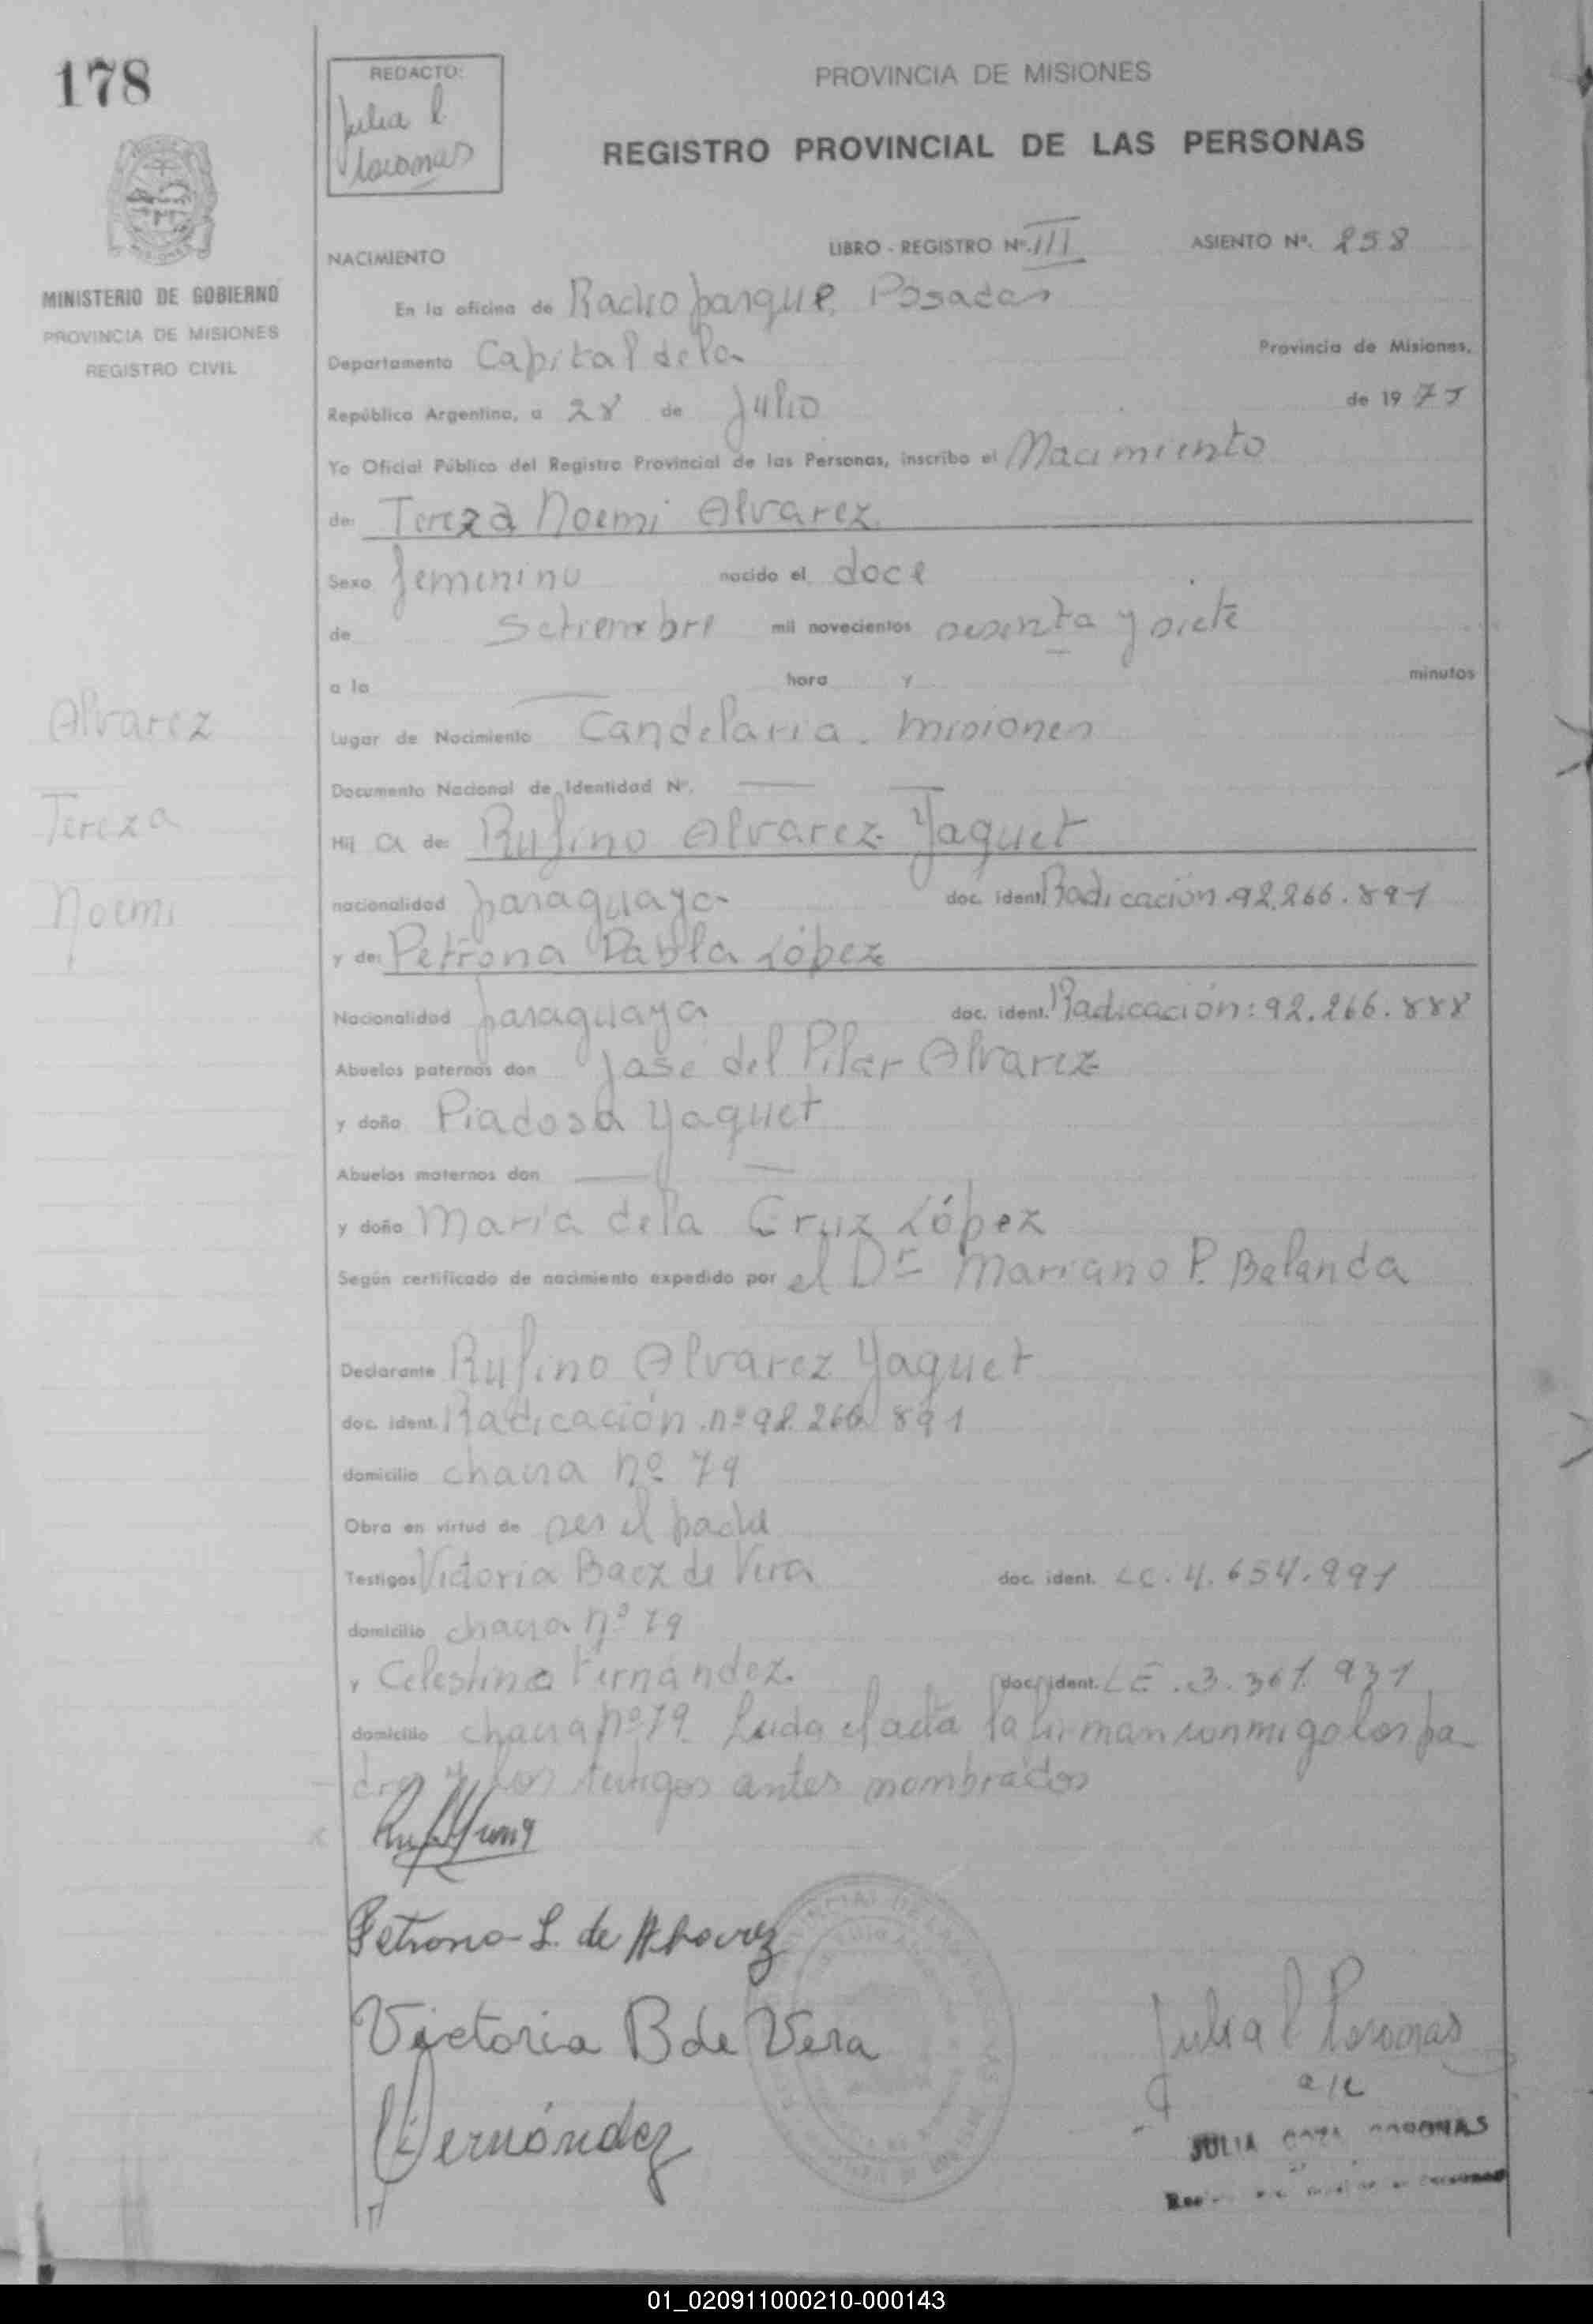 178
REDACTO:
Julia C.
PROVINCIA DE MISIONES
REGISTRO PROVINCIAL DE LAS PERSONAS
MINISTERIO DE GOBIERNO
PROVINCIA DE MISIONES
REGISTRO CIVIL
NACIMIENTO
LIBRO - REGISTRO Nº. III ASIENTO Nº. 258
En la oficina de Radio parque, Posadas
Departamento Capital de la Provincia de Misiones,
República Argentina, a 28 de Julio de 1975
Yo Oficial Público del Registro Provincial de las Personas, inscribo el Nacimiento
de: Tereza Noemi Alvarez
Sexo femenino nacido el doce
de Setiembre mil novecientos sesenta y siete
a la hora y minutos
Lugar de Nacimiento Candelaria. Misiones
Documento Nacional de Identidad Nº.
Hij a de: Rufino Alvarez Yaquet
nacionalidad paraguaya doc. ident. Radicación.92.266.891
y de: Petrona Pabla López
Nacionalidad paraguaya doc. ident. Radicación: 92.266.888
Abuelos paternos don José del Pilar Alvarez
y doña Piadosa Yaquet
Abuelos maternos don
y doña María de la Cruz López
Según certificado de nacimiento expedido por el Dr Mariano P. Balanda
Declarante Rufino Alvarez Yaquet
doc. ident. Radicación. nº 92.266.891
domicilio chacra nº 79
Obra en virtud de ser el padre
Testigos Victoria Baez de Vera doc. ident. LC. 4.654.991
domicilio chacra nº 79
y Celestino Fernández. doc. ident. LE. 3.367.931
domicilio chacra nº 79. Leida el acta la firman conmigo los pa
dres y los testigos antes nombrados
Alvarez
Tereza
Noemi
Petrona L. de Alvarez
Victoria B de Vera
Fernández
Julia C
a/c
JULIA
01_020911000210-000143